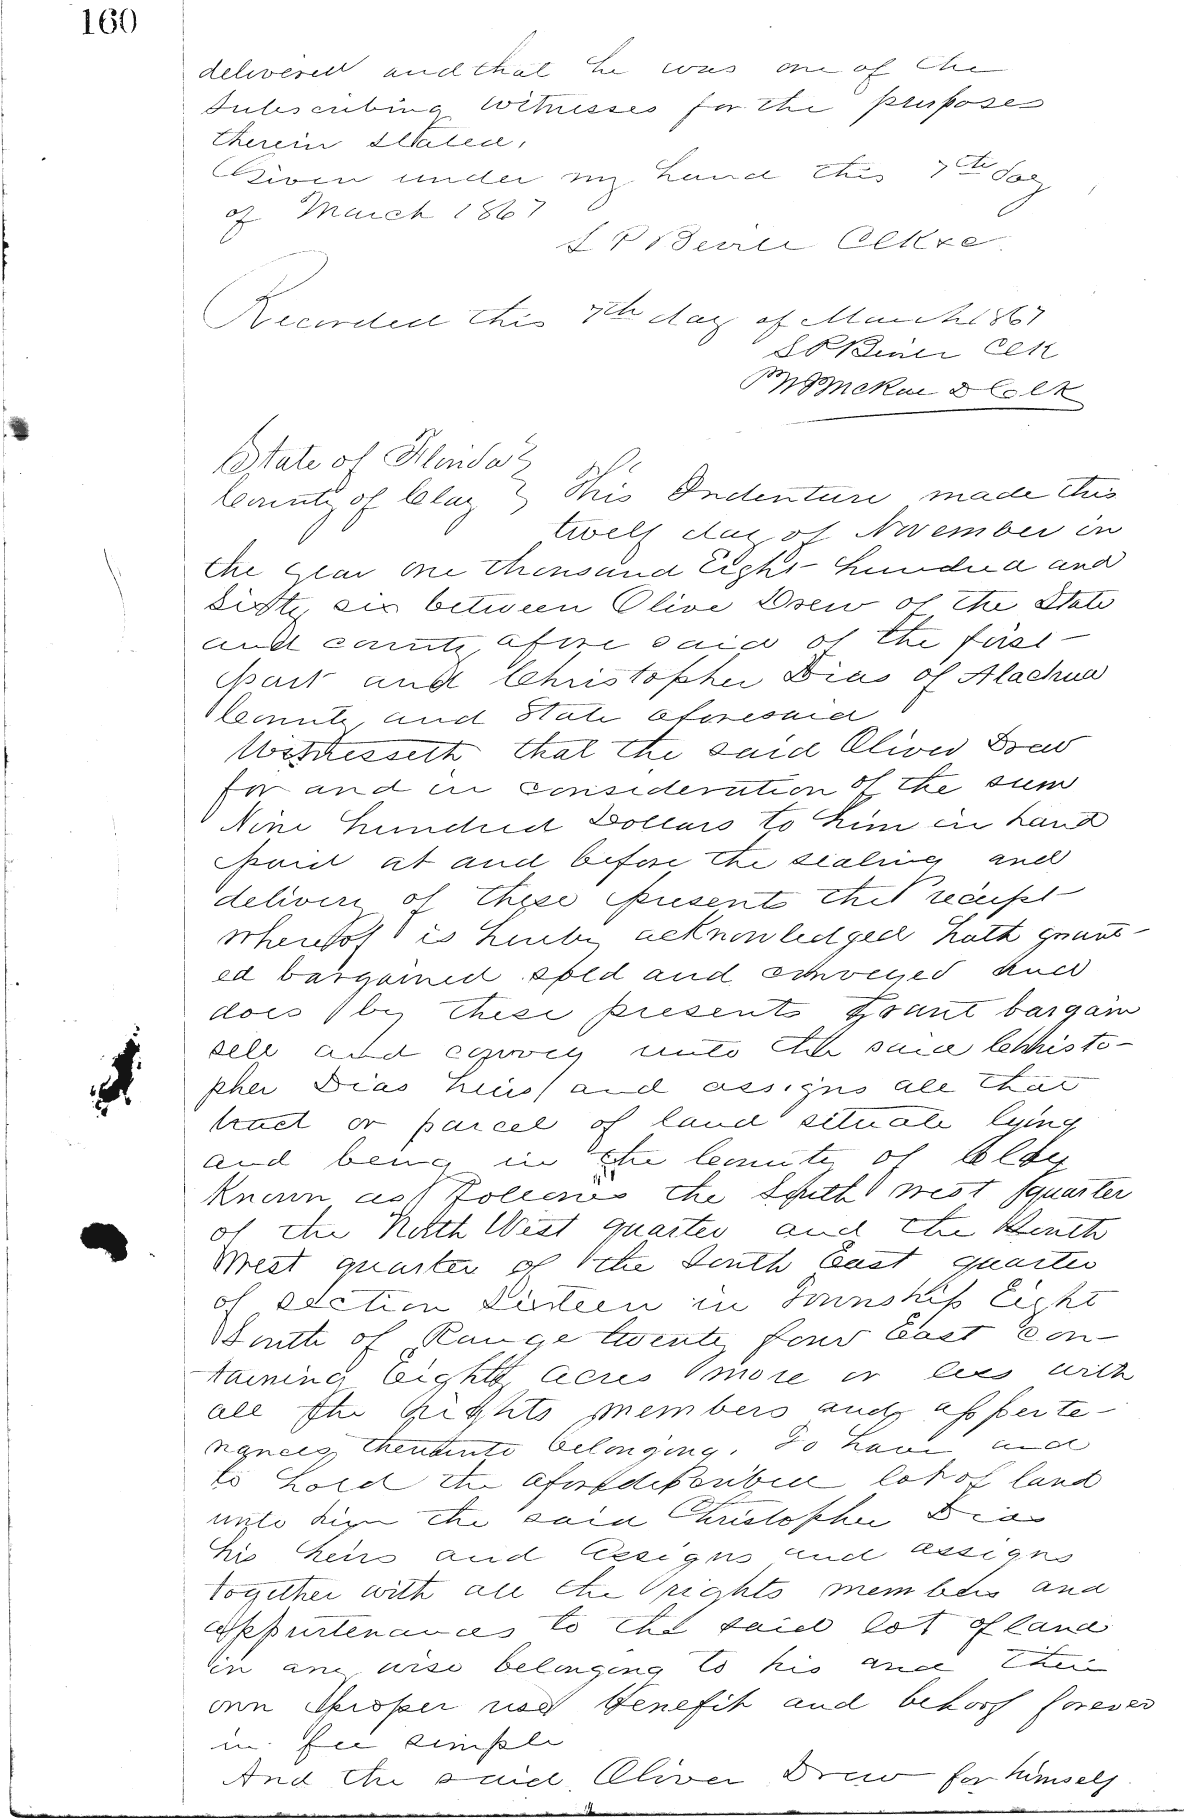 160
delivered and that he was one of the
Subscribing witnesses for the purposes
therein stated.
Given under my hand this 7th day
of March 1867
S P Bevill Clk
Recorded this 7th day of March 1867
S P Bevill Clk
McRae D Clk
State of Florida
County of Clay } This Indenture made this
twelf day of November in
the year one thousand Eight hundred and
Sixty six between Olive Drew of the State
and county afore said of the first
part and Christopher Dias of Alachua
County and State aforesaid
Witnesseth that the said Oliver Drew
for and in consideration of the sum
Nine hundred Dollars to him in hand
paid at and before the sealing and
delivery of these presents the receipt
whereof is hereby acknowledged hath grant-
ed bargained sold and conveyed and
does by these presents Grant bargain
sell and convey unto the said Christo-
pher Dias heirs and assigns all that
tract or parcel of land situate lying
and being in the County of Clay
Known as follows the South west quarter
of the North West quarter and the North
West quarter of the South East quarter
of section Sixteen in Township Eight
South of Range twenty four East con-
taining Eighty acres more or less with
all the rights members and apperte-
nances thereunto belonging. To have and
to hold the aforedescribed lot of land
unto him the said Christopher Dias
his heirs and Assigns and assigns
together with all the rights members and
appurtenances to the said lot of land
in any wise belonging to his and their
own proper use benefit and behoof forever
in fee simple
And the said Oliver Drew for himself